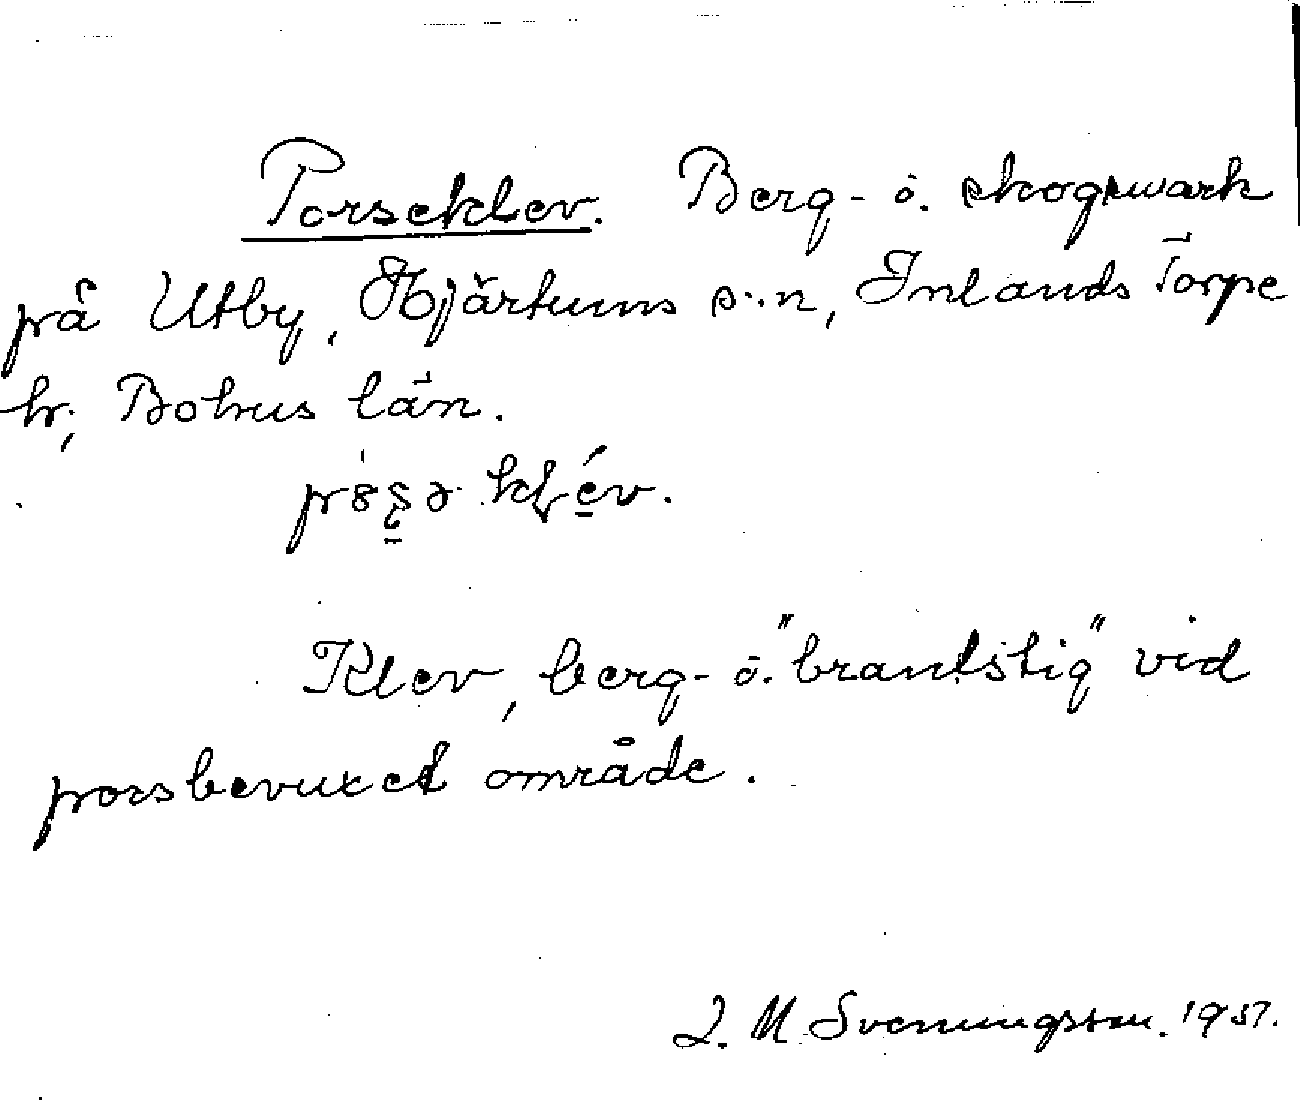 Porseklev. Berg- o. skogsmark
på Utby, Hjärtums s:n, Inlands Torpe
hr, Bohus län.
Klev, berg- o. "brantstig" vid
porsbevuxet område.
J. M. Svenningsson. 1937.